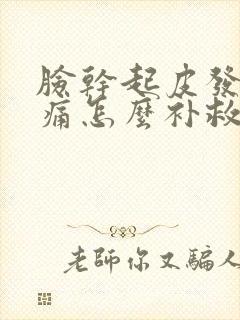 臉幹起皮發
痛怎麼补救
老師你又騙人